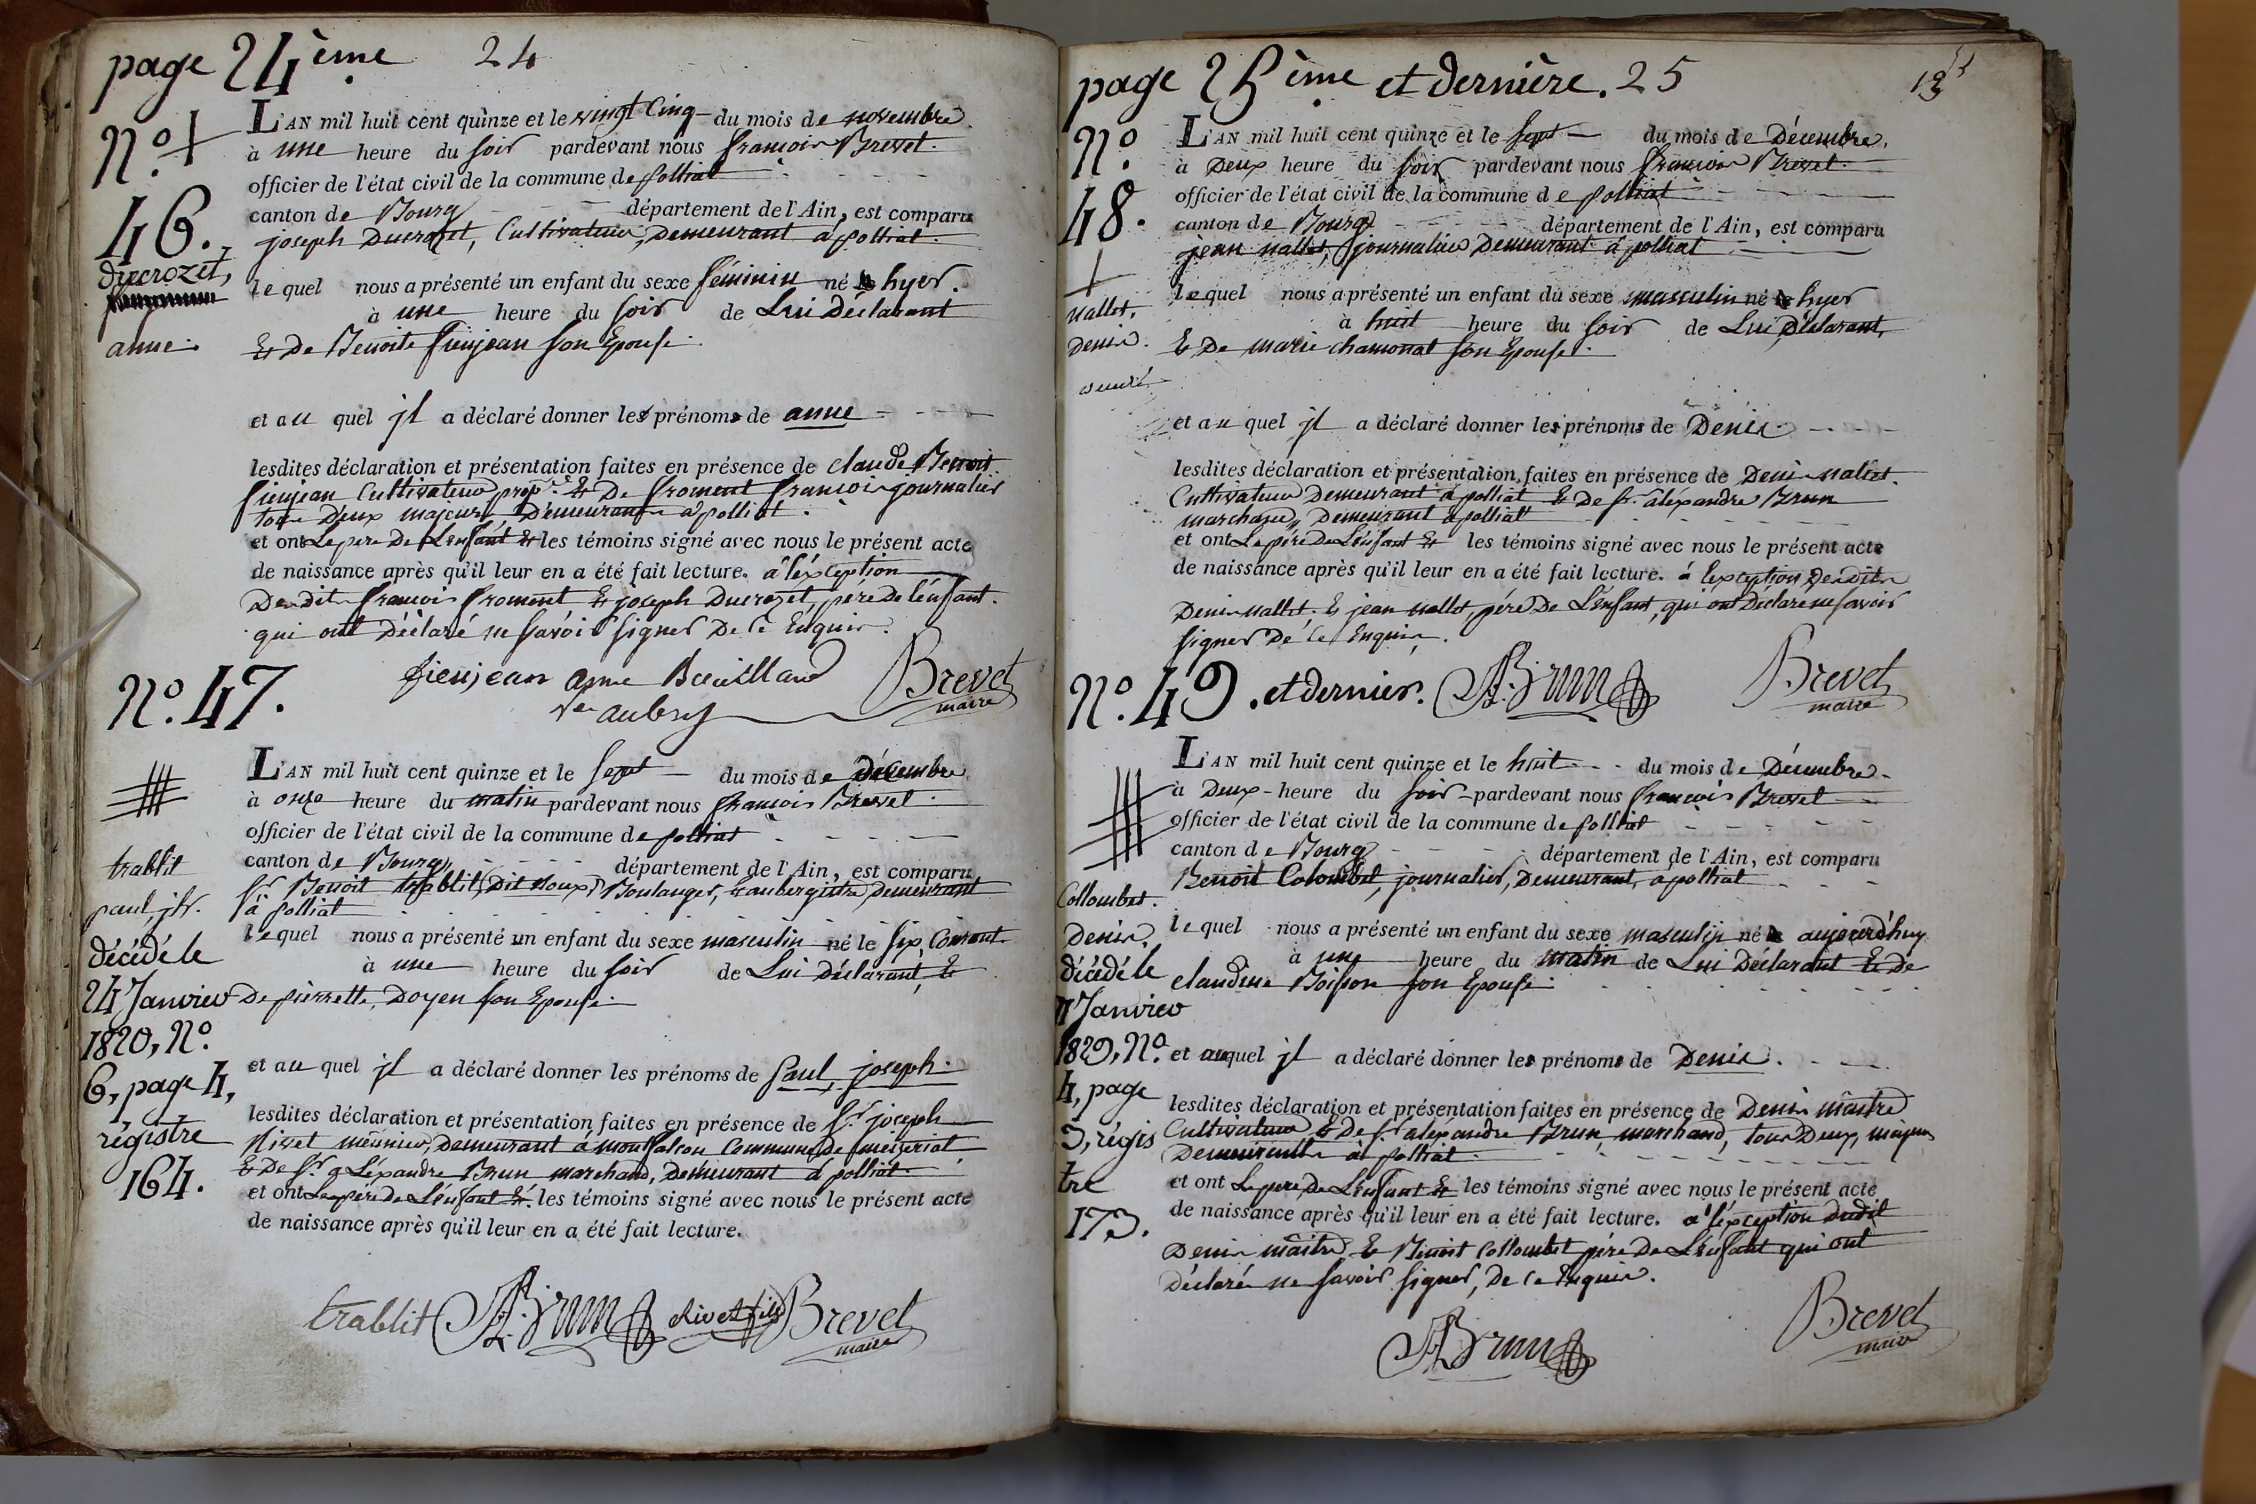 page 24ème 24
N.°
46.
ducrozet,
anne.
L'AN mil huit cent quinze et le vingt Cinq du mois de novembre
à une heure du soir pardevant nous françois Brevet.
officier de l'état civil de la commune de polliat
canton de Bourg département de l'Ain, est comparu
joseph Ducrozet, Cultivateur, Demeurant à polliat.
lequel nous a présenté un enfant du sexe féminin né hyer.
à une heure du soir de Lui Déclarant
& De Benoite fieujean son Epouse.
et au quel jl a déclaré donner les prénoms de anne
lesdites déclaration et présentation faites en présence de claude Benoit
fieujean Cultivateur prop.re & De froment françois journalier
tous Deux majeurs Demeurants à polliat.
et ont Le pere De L'enfant & les témoins signé avec nous le présent acte
de naissance après qu'il leur en a été fait lecture. à l'éxception
Desdits françois froment & joseph Ducrozet, pére De l'énfant.
qui ont Déclaré ne savoir signer De ce Enquis.
fieujean anne Bouillard Brevet
ve aubry maire
N.° 47.
trablit
paul, jh.
décédé le
24 Janvier
1820, N.°
6, page 4,
régistre
164.
L'AN mil huit cent quinze et le sept du mois de Décembre
à onze heure du matin pardevant nous françois Brevet.
officier de l'état civil de la commune de polliat
canton de Bourg département de l'Ain, est comparu
S.r Benoit trablit, Dit Roux, Boulanger, & aubergiste, Demeurant
à polliat
lequel nous a présenté un enfant du sexe masculin né le six, Courant.
à une heure du soir de Lui Déclarant, &
De pierrette, Doyen son Epouse.
et au quel jl a déclaré donner les prénoms de Paul, joseph.
lesdites déclaration et présentation faites en présence de S.r joseph
Rivet meunier, Demeurant à montfalcon Commune De mezeriat
& De S.r aLéxandre Brun marchand, Demeurant à polliat.
et ont Le père De L'énfant & les témoins signé avec nous le présent acte
de naissance après qu'il leur en a été fait lecture.
trablit A. Brun Rivet fils Brevet
maire
page 25ème et dernière. 25
N.°
48.
nallet,
Denis.
L'AN mil huit cent quinze et le sept du mois de Décembre.
à Deux heure du soir pardevant nous françois Brevet.
officier de l'état civil de la commune de polliat
canton de Bourg département de l'Ain, est comparu
jean nallet, journalier Demeurant à polliat
lequel nous a présenté un enfant du sexe masculin né hyer
à huit heure du soir de Lui, Déclarant,
& De marie chamonal son Epouse.
et au quel jl a déclaré donner les prénoms de Denis.
lesdites déclaration et présentation faites en présence de Denis nallet.
Cultivateur Demeurant à polliat & De S.r aléxandre Brun
marchand, Demeurant à polliat
et ont Le pére De L'énfant & les témoins signé avec nous le présent acte
de naissance après qu'il leur en a été fait lecture. à l'exception Desdits
Denis nallet, & jean nallet, pére De L'énfant, qui ont Déclaré ne savoir
signer De ce Enquis.
N.° 49. et dernier. A. Brun Brevet
maire
Collombet.
Denis,
décédé le
Janvier
1829, N.°
4, page
3, régis
tre
173.
L'AN mil huit cent quinze et le huit du mois de Décembre
à Deux heure du soir pardevant nous françois Brevet
officier de l'état civil de la commune de polliat
canton de Bourg département de l'Ain, est comparu
Benoit Colombet, journalier, Demeurant, à polliat
lequel nous a présenté un enfant du sexe masculin né aujourd'huy
à une heure du matin de Lui Déclarant & De
claudine Boisson son Epouse.
et auquel jl a déclaré donner les prénoms de Denis.
lesdites déclaration et présentation faites en présence de Denis mâitre
Cultivateur & De S.r aléxandre Brun, marchand, tous Deux, majeurs
Demeurants à polliat.
et ont Le pere De L'énfant & les témoins signé avec nous le présent acte
de naissance après qu'il leur en a été fait lecture. à l'éxception dudit
Denis mâitre & Benoit Collombet pére De L'énfant qui ont
Déclaré ne savoir signer, De ce Enquis.
A Brun Brevet
maire